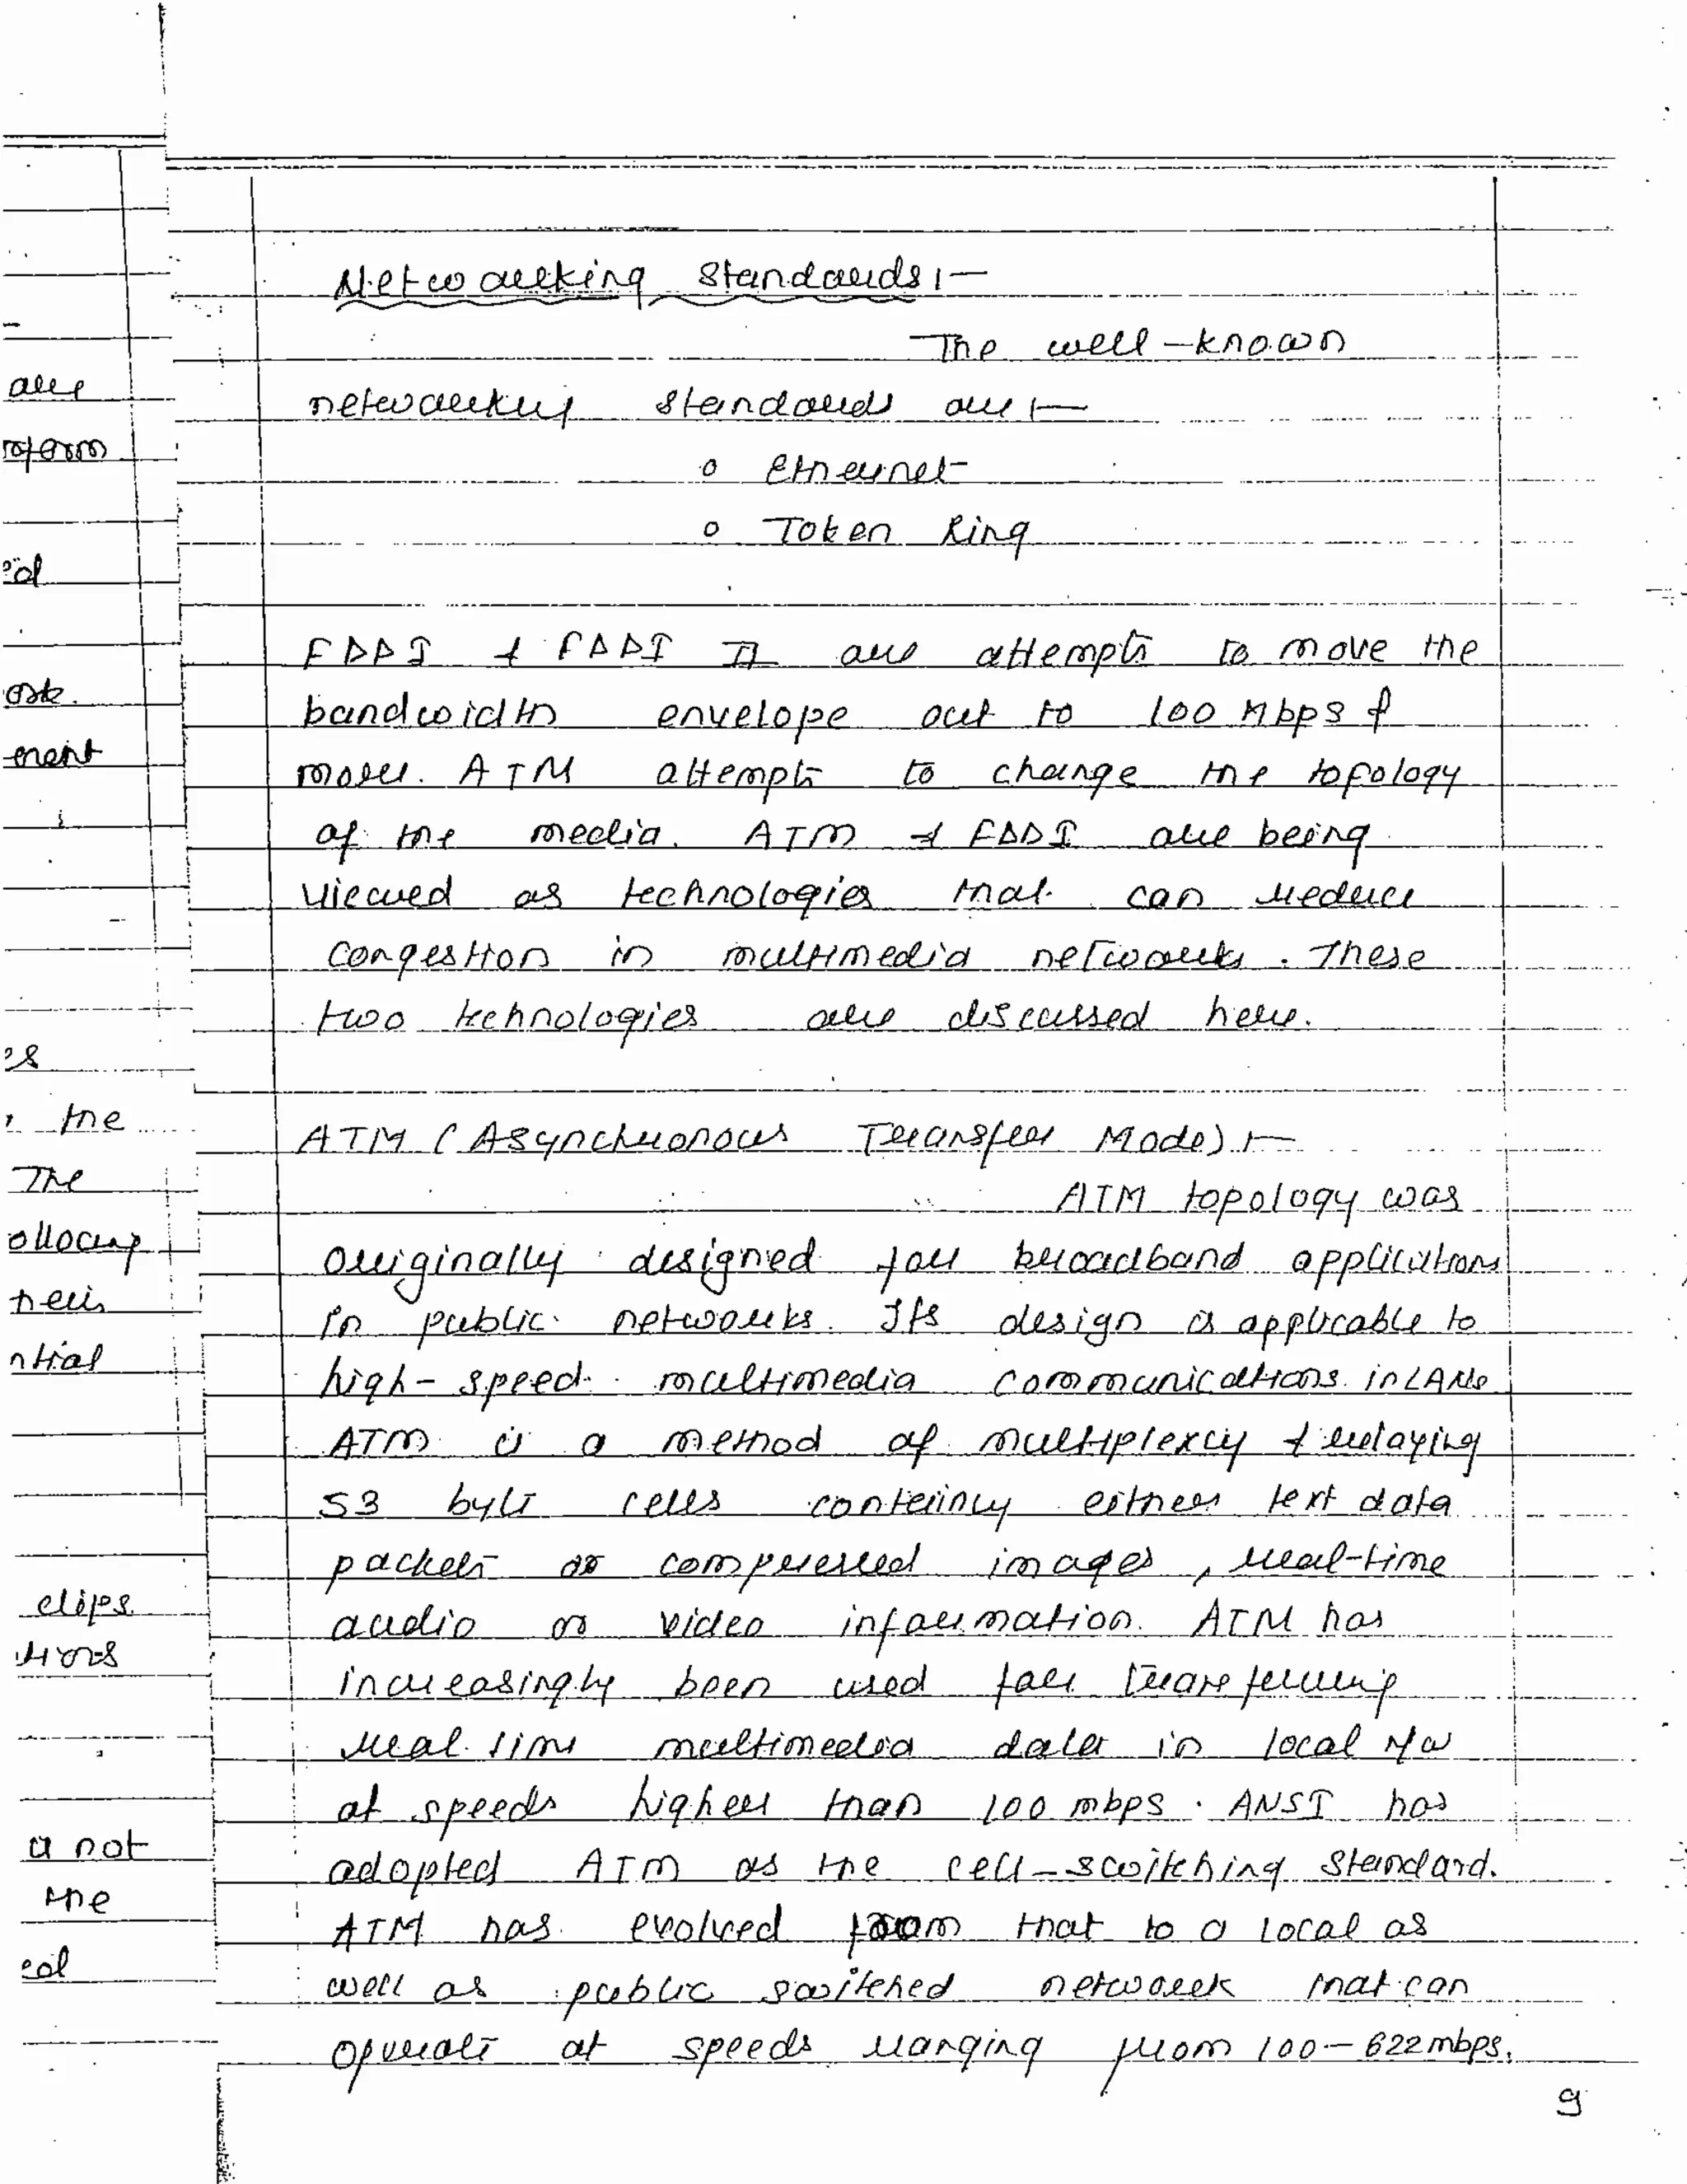 Networking Standards :-
The well-known
networking standards are :-
o Ethernet
o Token Ring
FDDI & FDDI II are attempts to move the
bandwidth envelope out to 100 Mbps &
more. ATM attempts to change the topology
of the media. ATM & FDDI are being
viewed as technologies that can reduce
congestion in multimedia networks. These
two technologies are discussed here.
ATM (Asynchronous Transfer Mode) :-
ATM topology was
originally designed for broadband applications
in public networks. Its design is applicable to
high-speed multimedia communications in LANs
ATM is a method of multiplexing & relaying
53 byte cells containing either text data
packets or compressed images, real-time
audio or video information. ATM has
increasingly been used for transferring
real time multimedia data in local n/w
at speeds higher than 100 mbps. ANSI has
adopted ATM as the cell-switching standard.
ATM has evolved from that to a local as
well as public switched network that can
operate at speeds ranging from 100-622mbps.
9
are
ment
the
The
ntial
clips
not
the